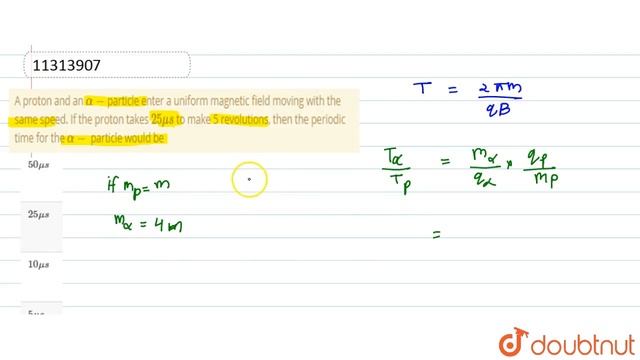 11313907
A proton and an α − particle enter a uniform magnetic field moving with the
same speed. If the proton takes 25μs to make 5 revolutions, then the periodic
time for the α − particle would be
T = 2πm / qB
50μs
Tα / Tp = mα / qα × qp / mp
if mp = m
25μs
mα = 4m
=
10μs
5μs
doubtnut